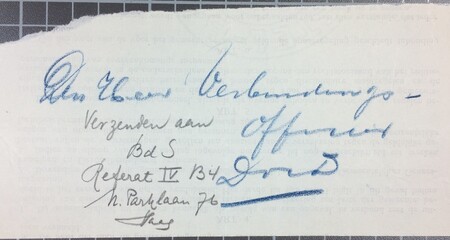 Den Heer Verbindungs-
Officier
Verzenden aan
BdS
Referat IV B4
N. Parklaan 76
Haag